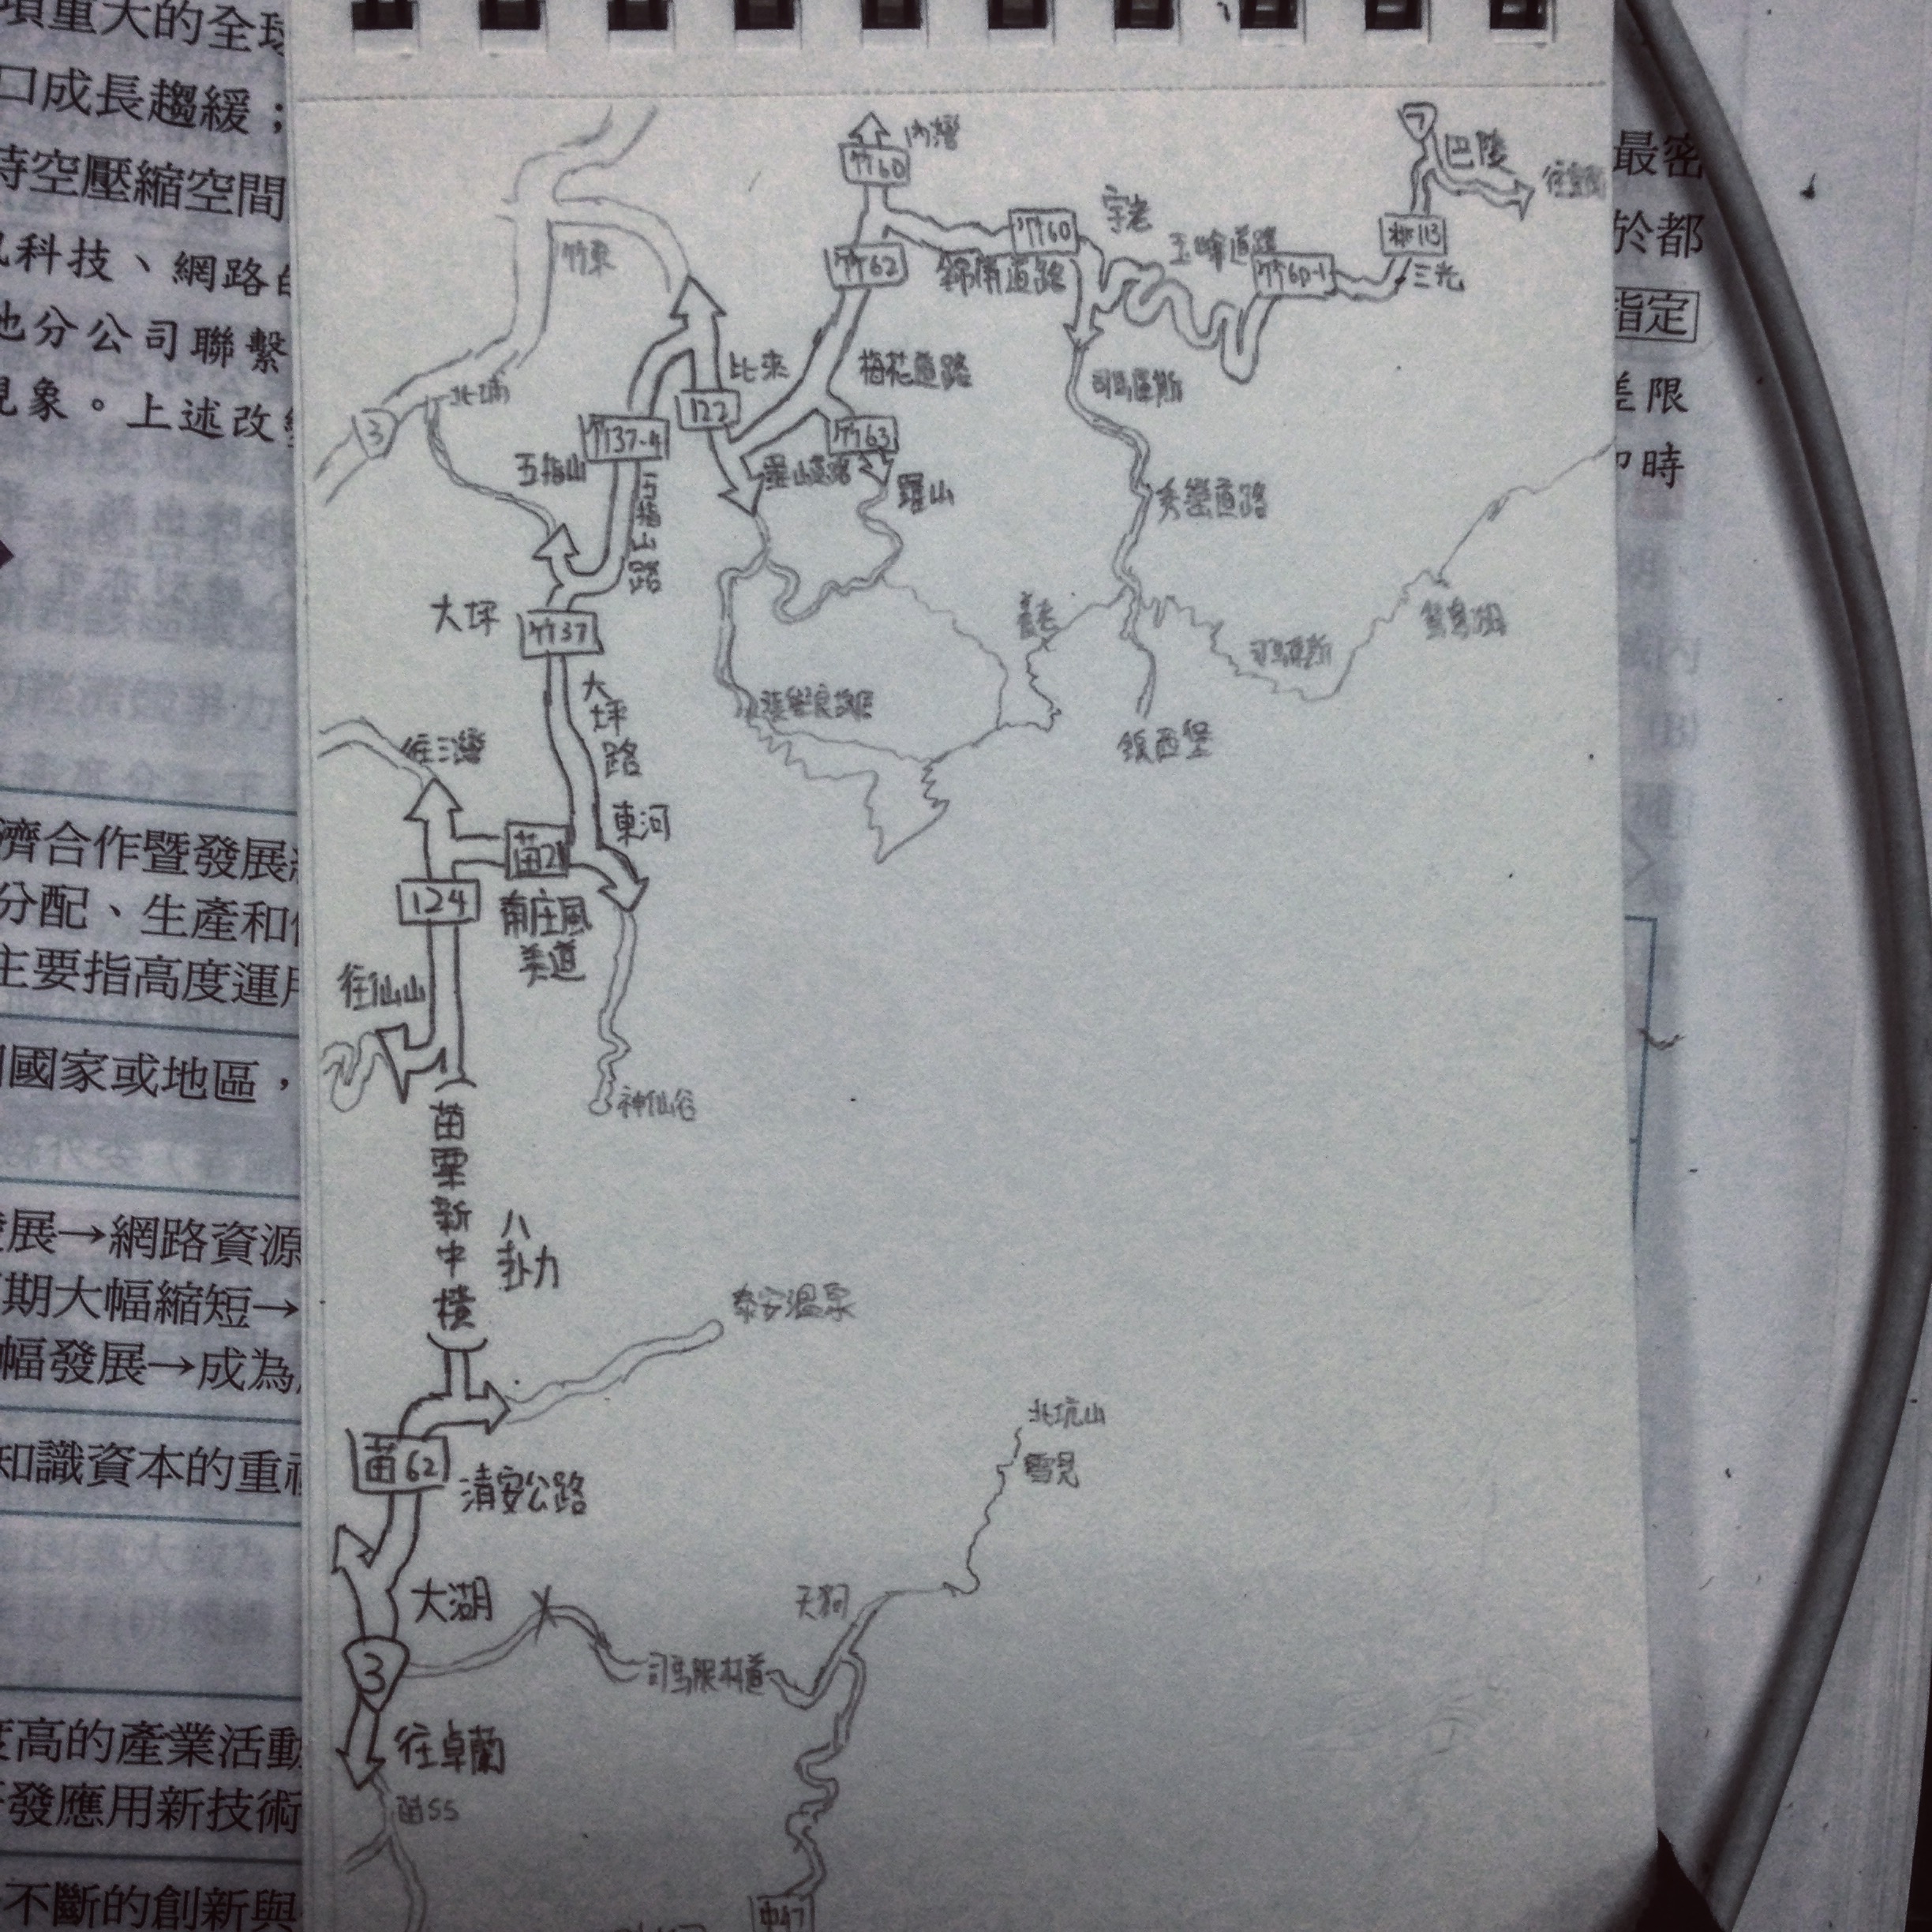 項重大的全球
口成長趨緩；
時空壓縮空間
訊科技、網路的
他分公司聯繫
現象。上述改變
濟合作暨發展
分配、生產和
主要指高度運用
國家或地區，
發展→網路資源
期大幅縮短→
幅發展→成為
知識資本的重
度高的產業活動
發應用新技術
不斷的創新與
內灣
竹60
7
巴陵
竹東
竹62
竹60
宇老
錦屏道路
玉峰道路
竹60-1
桃113
三光
3
北埔
比來
122
梅花道路
司馬庫斯
竹37-4
五指山
五指山路
竹63
羅山道路
羅山
秀巒道路
大坪
竹37
養老
司馬庫斯
鴛鴦湖
大坪路
鎮西堡
往三灣
東河
苗21
124
南庄風
美道
往仙山
神仙谷
苗栗新中橫
八卦力
泰安溫泉
苗62
清安公路
北坑山
雪見
大湖
天狗
3
司馬限林道
往卓蘭
苗55
中47
最密
於都
指定
差限
即時